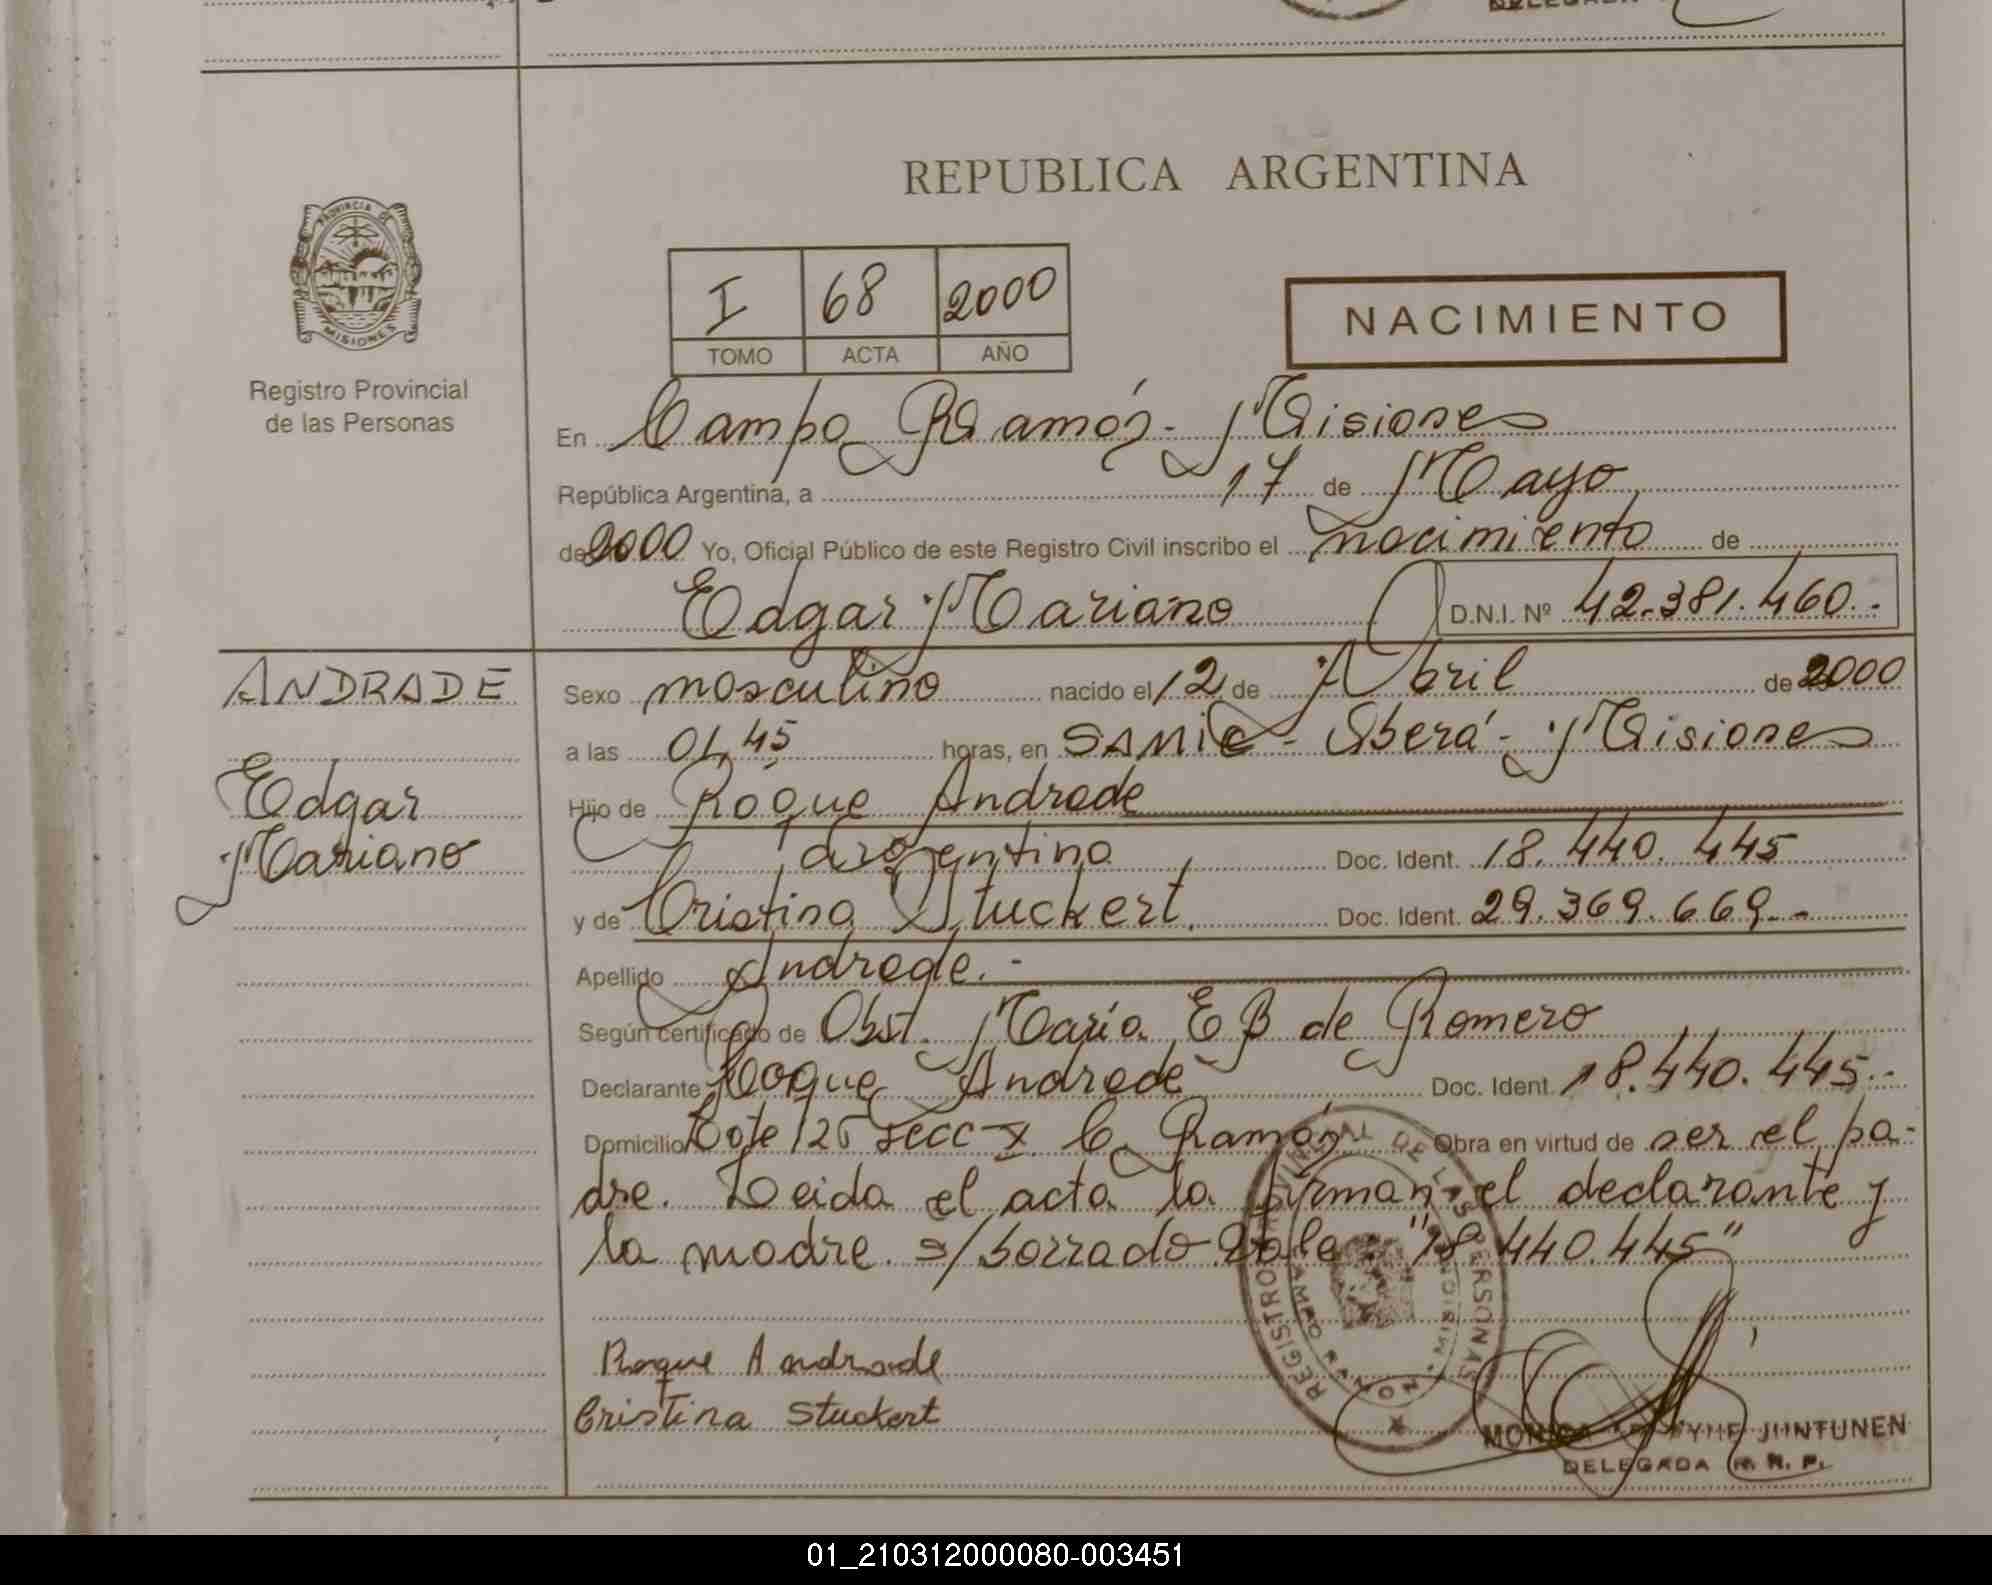 DELEGADA
REPUBLICA ARGENTINA
PROVINCIA DE
MISIONES
Registro Provincial
de las Personas
I 68 2000
TOMO ACTA AÑO
NACIMIENTO
En Campo Ramón - Misiones
República Argentina, a 17 de Mayo
de 2000 Yo, Oficial Público de este Registro Civil inscribo el nacimiento de
Edgar Mariano D.N.I. Nº 42.381.460.-
ANDRADE
Edgar
Mariano
Sexo masculino nacido el 12 de Abril de 2000
a las 01,45 horas, en SAMIC - Oberá - Misiones
Hijo de Roque Andrade
argentino Doc. Ident. 18.440.445
y de Cristina Stuckert. Doc. Ident. 29.369.669.-
Apellido Andrade.-
Según certificado de Obst. María E B de Romero
Declarante Roque Andrade Doc. Ident. 18.440.445.-
Domicilio Lote 126 secc X C. Ramón Obra en virtud de ser el pa-
dre. Leida el acta la firman el declarante y
la madre. s/borrado Vale: "18.440.445"
Roque Andrade
Cristina Stuckert
REGISTRO PROVINCIAL DE LAS PERSONAS
CAMPO RAMON - MISIONES
MONICA JUNTUNEN
DELEGADA R. P.
01_210312000080-003451